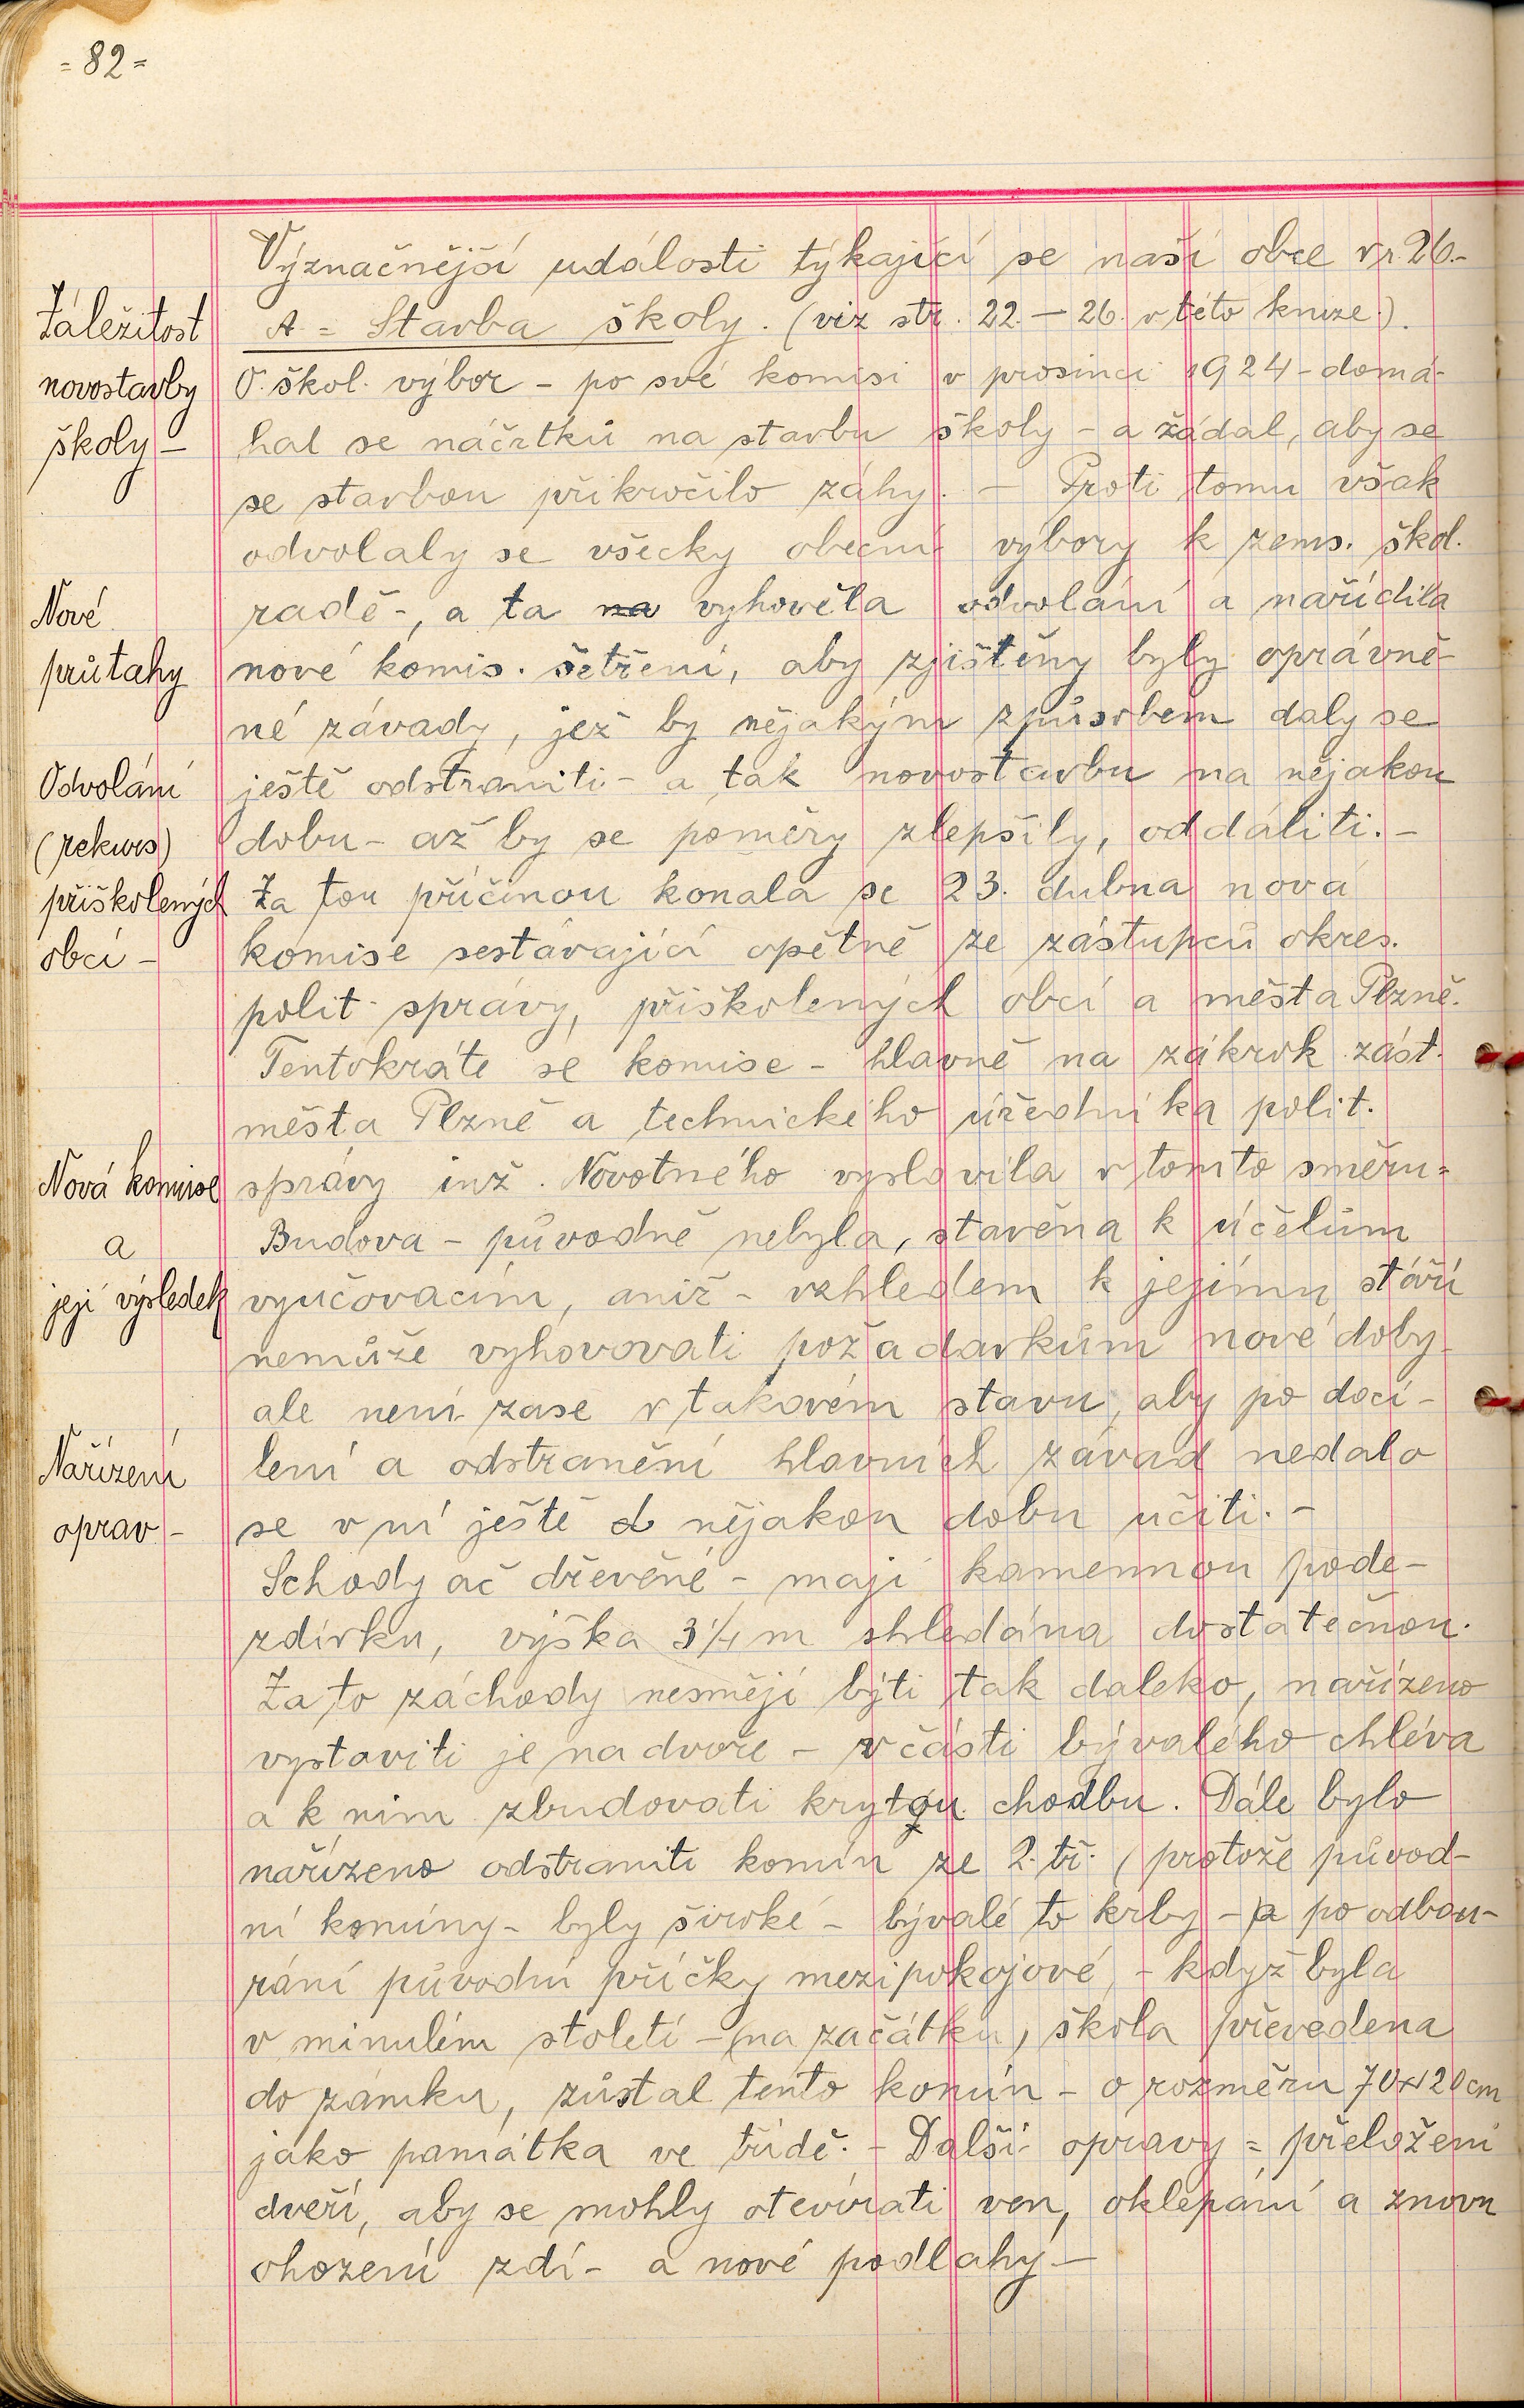 =82=
Význačnější události týkající se naší obce v r. 26.-
Záležitost
novostavby
školy –
A = Stavba školy. (viz str. 22. – 26. v této knize.).
O. škol. výbor – po své komisi v prosinci 1924 – domá-
hal se náčrtků na stavbu školy – a žádal, aby se
se stavbou přikročilo záhy. – Proti tomu však
odvolaly se všecky obecní výbory k zems. škol.
Nové
průtahy
radě -, a ta na vyhověla odvolání a nařídila
nové komis. šetření, aby zjištěny byly oprávně-
né závady, jež by nějakým způsobem daly se
Odvolání
(rekurs)
přiškolených
obcí –
ještě odstraniti – a tak novostavbu na nějakou
dobu – až by se poměry zlepšily, oddáliti. –
Za tou příčinou konala se 23. dubna nová
komise sestávající opětně ze zástupců okres.
polit. správy, přiškolených obcí a města Plzně.
Tentokráte se komise – hlavně na zákrok zást.
města Plzně a technického úředníka polit.
Nová komise
a
její výsledek
správy inž. Novotného vyslovila v tomto směru =
Budova – původně nebyla, stavěna k účelům
vyučovacím, aniž – vzhledem k jejímu stáří
nemůže vyhovovati požadavkům nové doby
ale není zase v takovém stavu, aby po docí-
Nařízení
oprav –
lení a odstranění hlavních závad nedalo
se v ní ještě d nějakou dobu učiti. –
Schody ač dřevěné – mají kamennou pode-
zdívku, výška 3 1/4 m shledána dostatečnou.
Za to záchody nesmějí býti tak daleko, nařízeno
vystaviti je na dvoře – v části bývalého chléva
a k nim zbudovati krytou chodbu. Dále bylo
nařízeno odstraniti komín ze 2. tř. (protože původ-
ní komíny – byly široké – bývalé to krby – a po odbou-
rání původní příčky mezipokojové, – když byla
v minulém století – (na začátku), škola převedena
do zámku, zůstal tento komín – o rozměru 70x120 cm
jako památka ve třídě. – Další opravy = přeložení
dveří, aby se mohly otevírati ven, oklepání a znovu
ohození zdí – a nové podlahy –